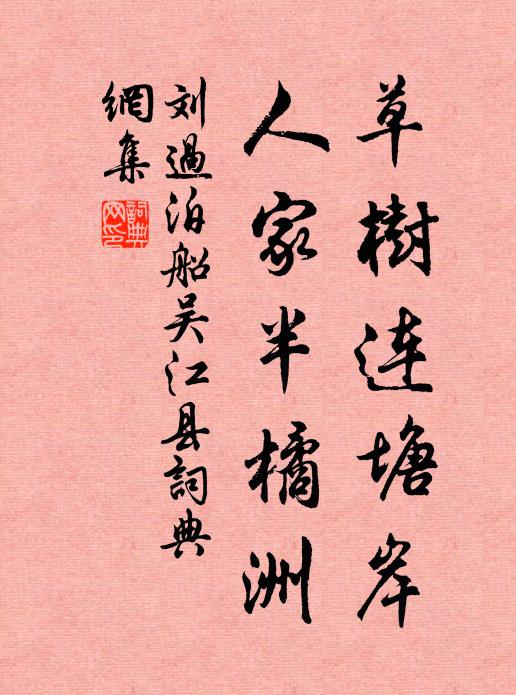 草樹连塘岸
人家半橘洲
刘過泊船吴江县詞典
網集
詞典
网印